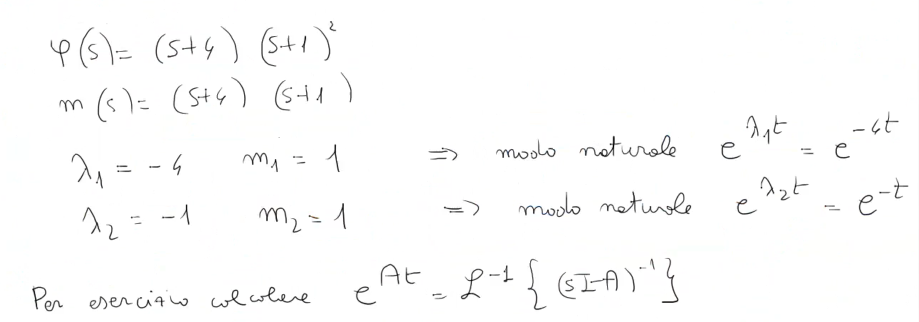 φ(s) = (s+4) (s+1)²
m(s) = (s+4) (s+1)
λ₁ = -4 m₁ = 1 => modo naturale e^{λ₁t} = e^{-4t}
λ₂ = -1 m₂ = 1 => modo naturale e^{λ₂t} = e^{-t}
Per esercizio calcolare e^{At} = ℒ⁻¹ { (sI-A)⁻¹ }